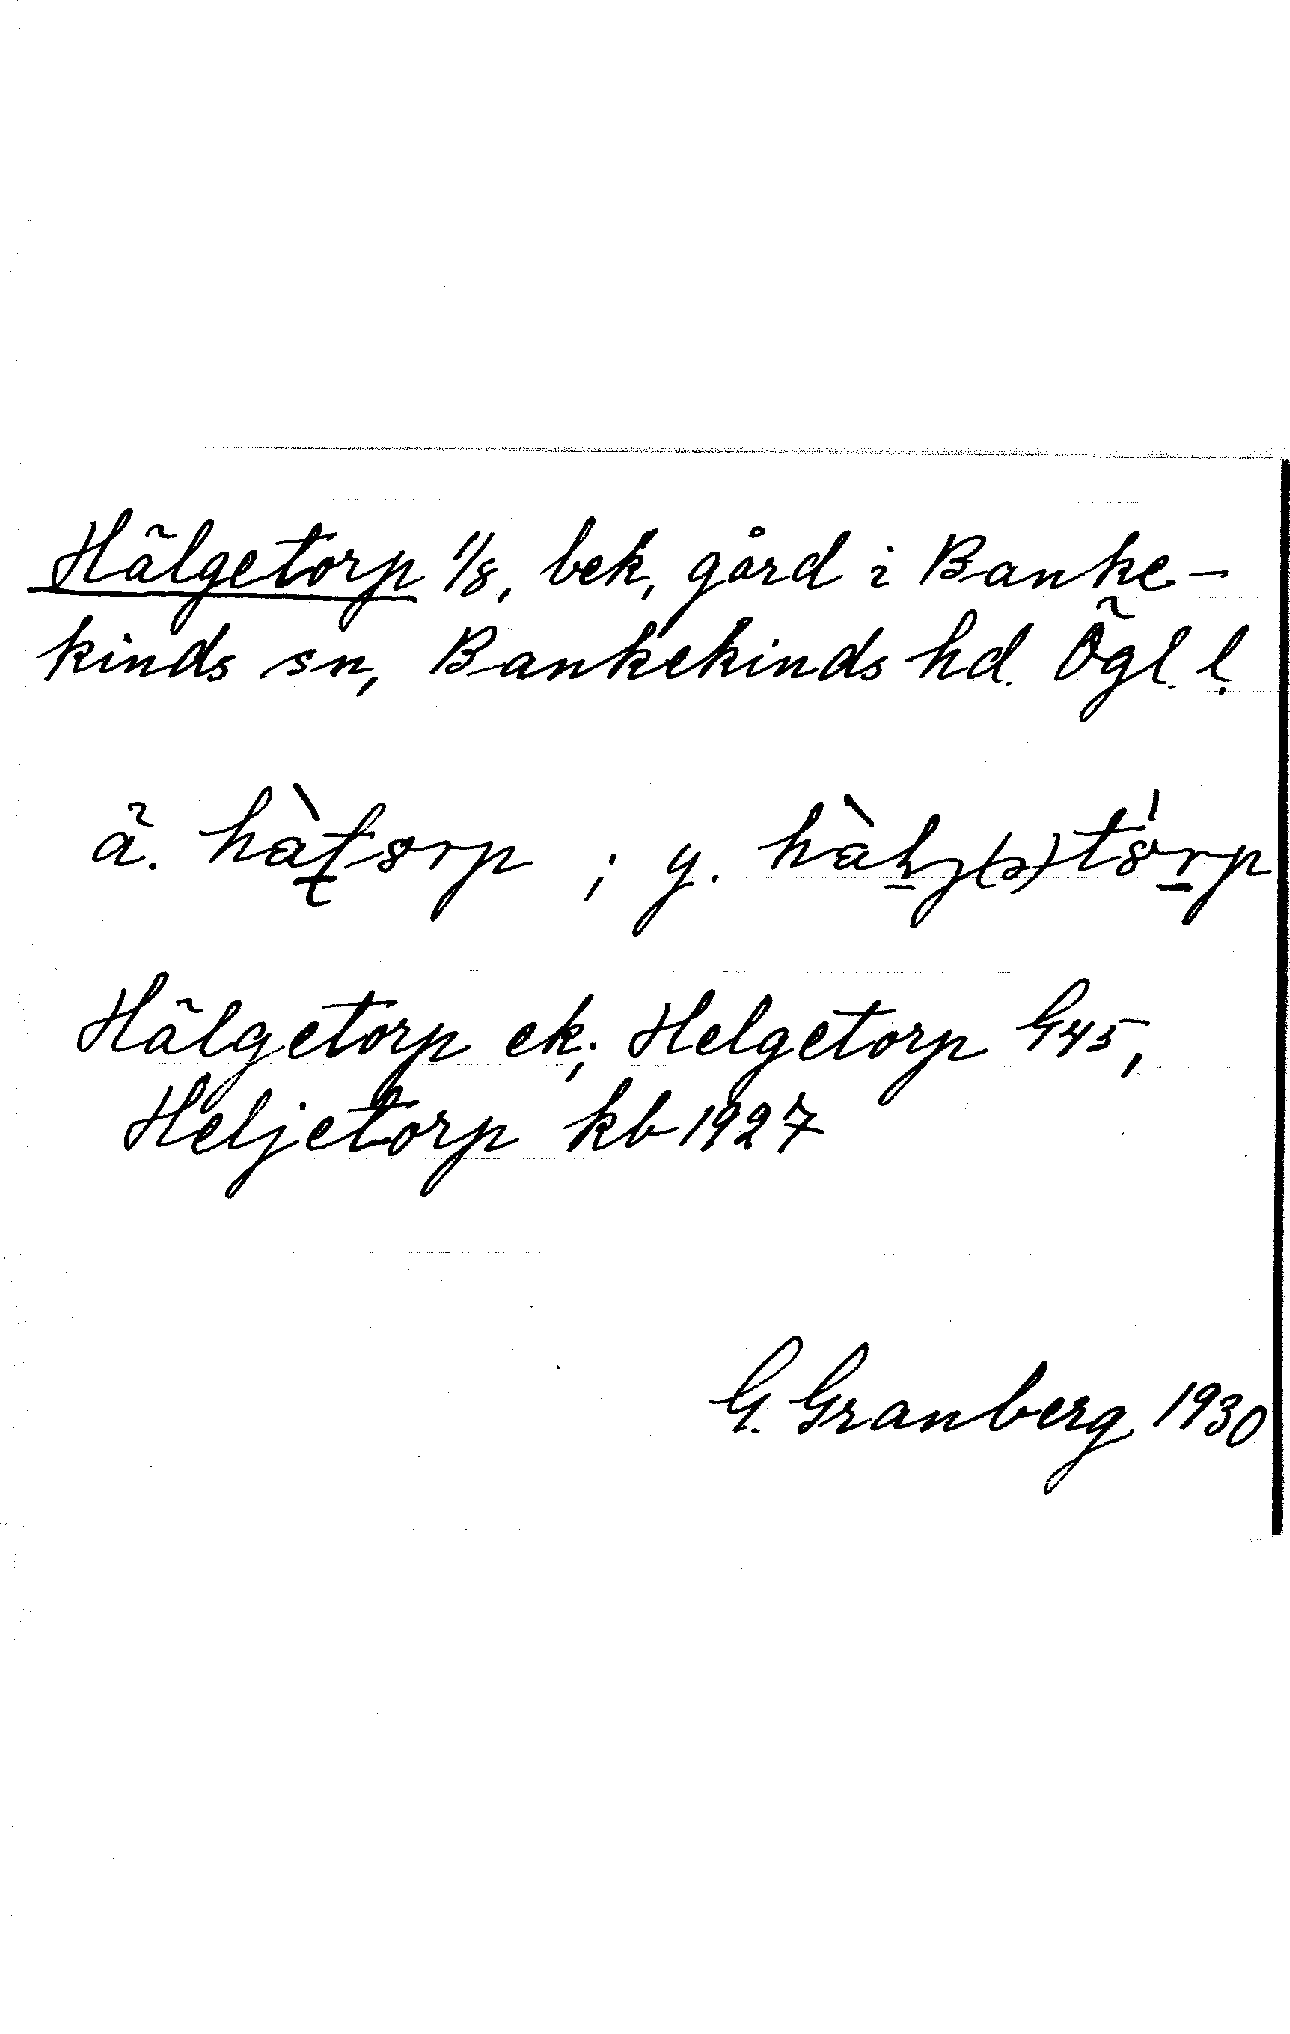 Hälgetorp 1/8, bek, gård i Banke-
kinds sn, Bankekinds hd. Ögl. l.
ä. ; y.
Hälgetorp ek; Helgetorp G45,
Heljetorp kb 1927
G. Granberg 1930